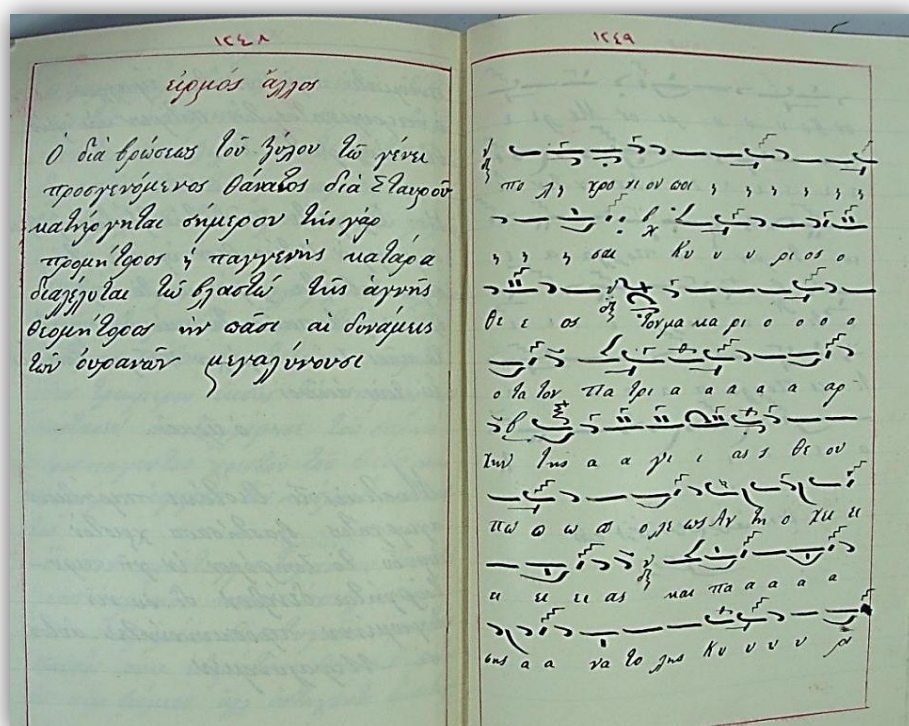 ١٢٤٨
εἱρμός ἄλλος
Ὁ διά βρώσεως τοῦ ξύλου τῷ γένει
προσγενόμενος θάνατος διά Σταυροῦ
κατήργηται σήμερον τῆς γάρ
προμήτορος ἡ παγγενής κατάρα
διαλέλυται τῷ βλαστῷ τῆς ἁγνῆς
θεομήτορος ἥν πᾶσαι αἱ δυνάμεις
τῶν οὐρανῶν μεγαλύνουσι
١٢٤٩
πο λυ χρο νι ον ποι η η η η
η η η σαι Κυ υ υ υ ρι ος ο
θε ε ος Τον μα κα ρι ο ο ο ο
ο τα τον Πα τρι α α α α α αρ
χην της α α γι ι ας θε ου
πο ο λε ως Αν τι ο χει ει
ει ει ει ας και πα α α α α
σης α α να το λης Κυ υ υ υ ρι